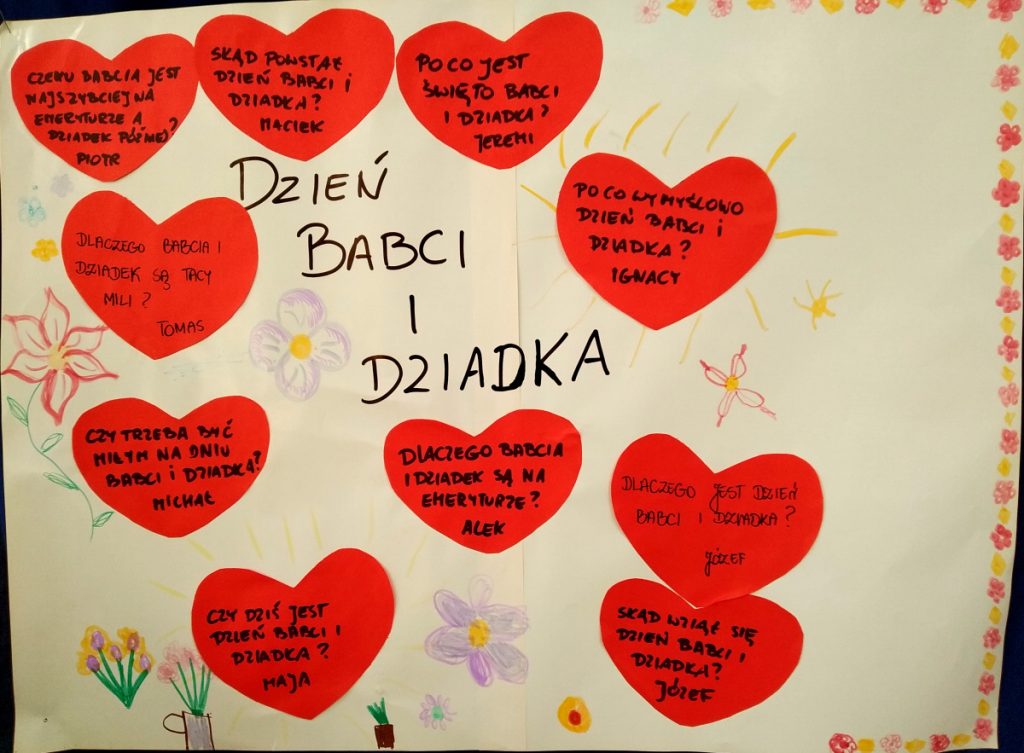 CZEMU BABCIA JEST
NAJSZYBCIEJ NA
EMERYTURZE A
DZIADEK PÓŹNIEJ?
PIOTR
SKĄD POWSTAŁ
DZIEŃ BABCI I
DZIADKA?
MACIEK
PO CO JEST
ŚWIĘTO BABCI
I DZIADKA?
JEREMI
DZIEŃ
BABCI
I
DZIADKA
PO CO WYMYŚLOWO
DZIEŃ BABCI I
DZIADKA?
IGNACY
DLACZEGO BABCIA I
DZIADEK SĄ TACY
MILI?
TOMAS
CZY TRZEBA BYĆ
MIŁYM NA DNIU
BABCI I DZIADKA?
MICHAŁ
DLACZEGO BABCIA
I DZIADEK SĄ NA
EMERYTURZE?
ALEK
DLACZEGO JEST DZIEŃ
BABCI I DZIADKA?
JÓZEF
CZY DZIŚ JEST
DZIEŃ BABCI I
DZIADKA?
MAJA
SKĄD WZIĄŁ SIĘ
DZIEŃ BABCI I
DZIADKA?
JÓZEF